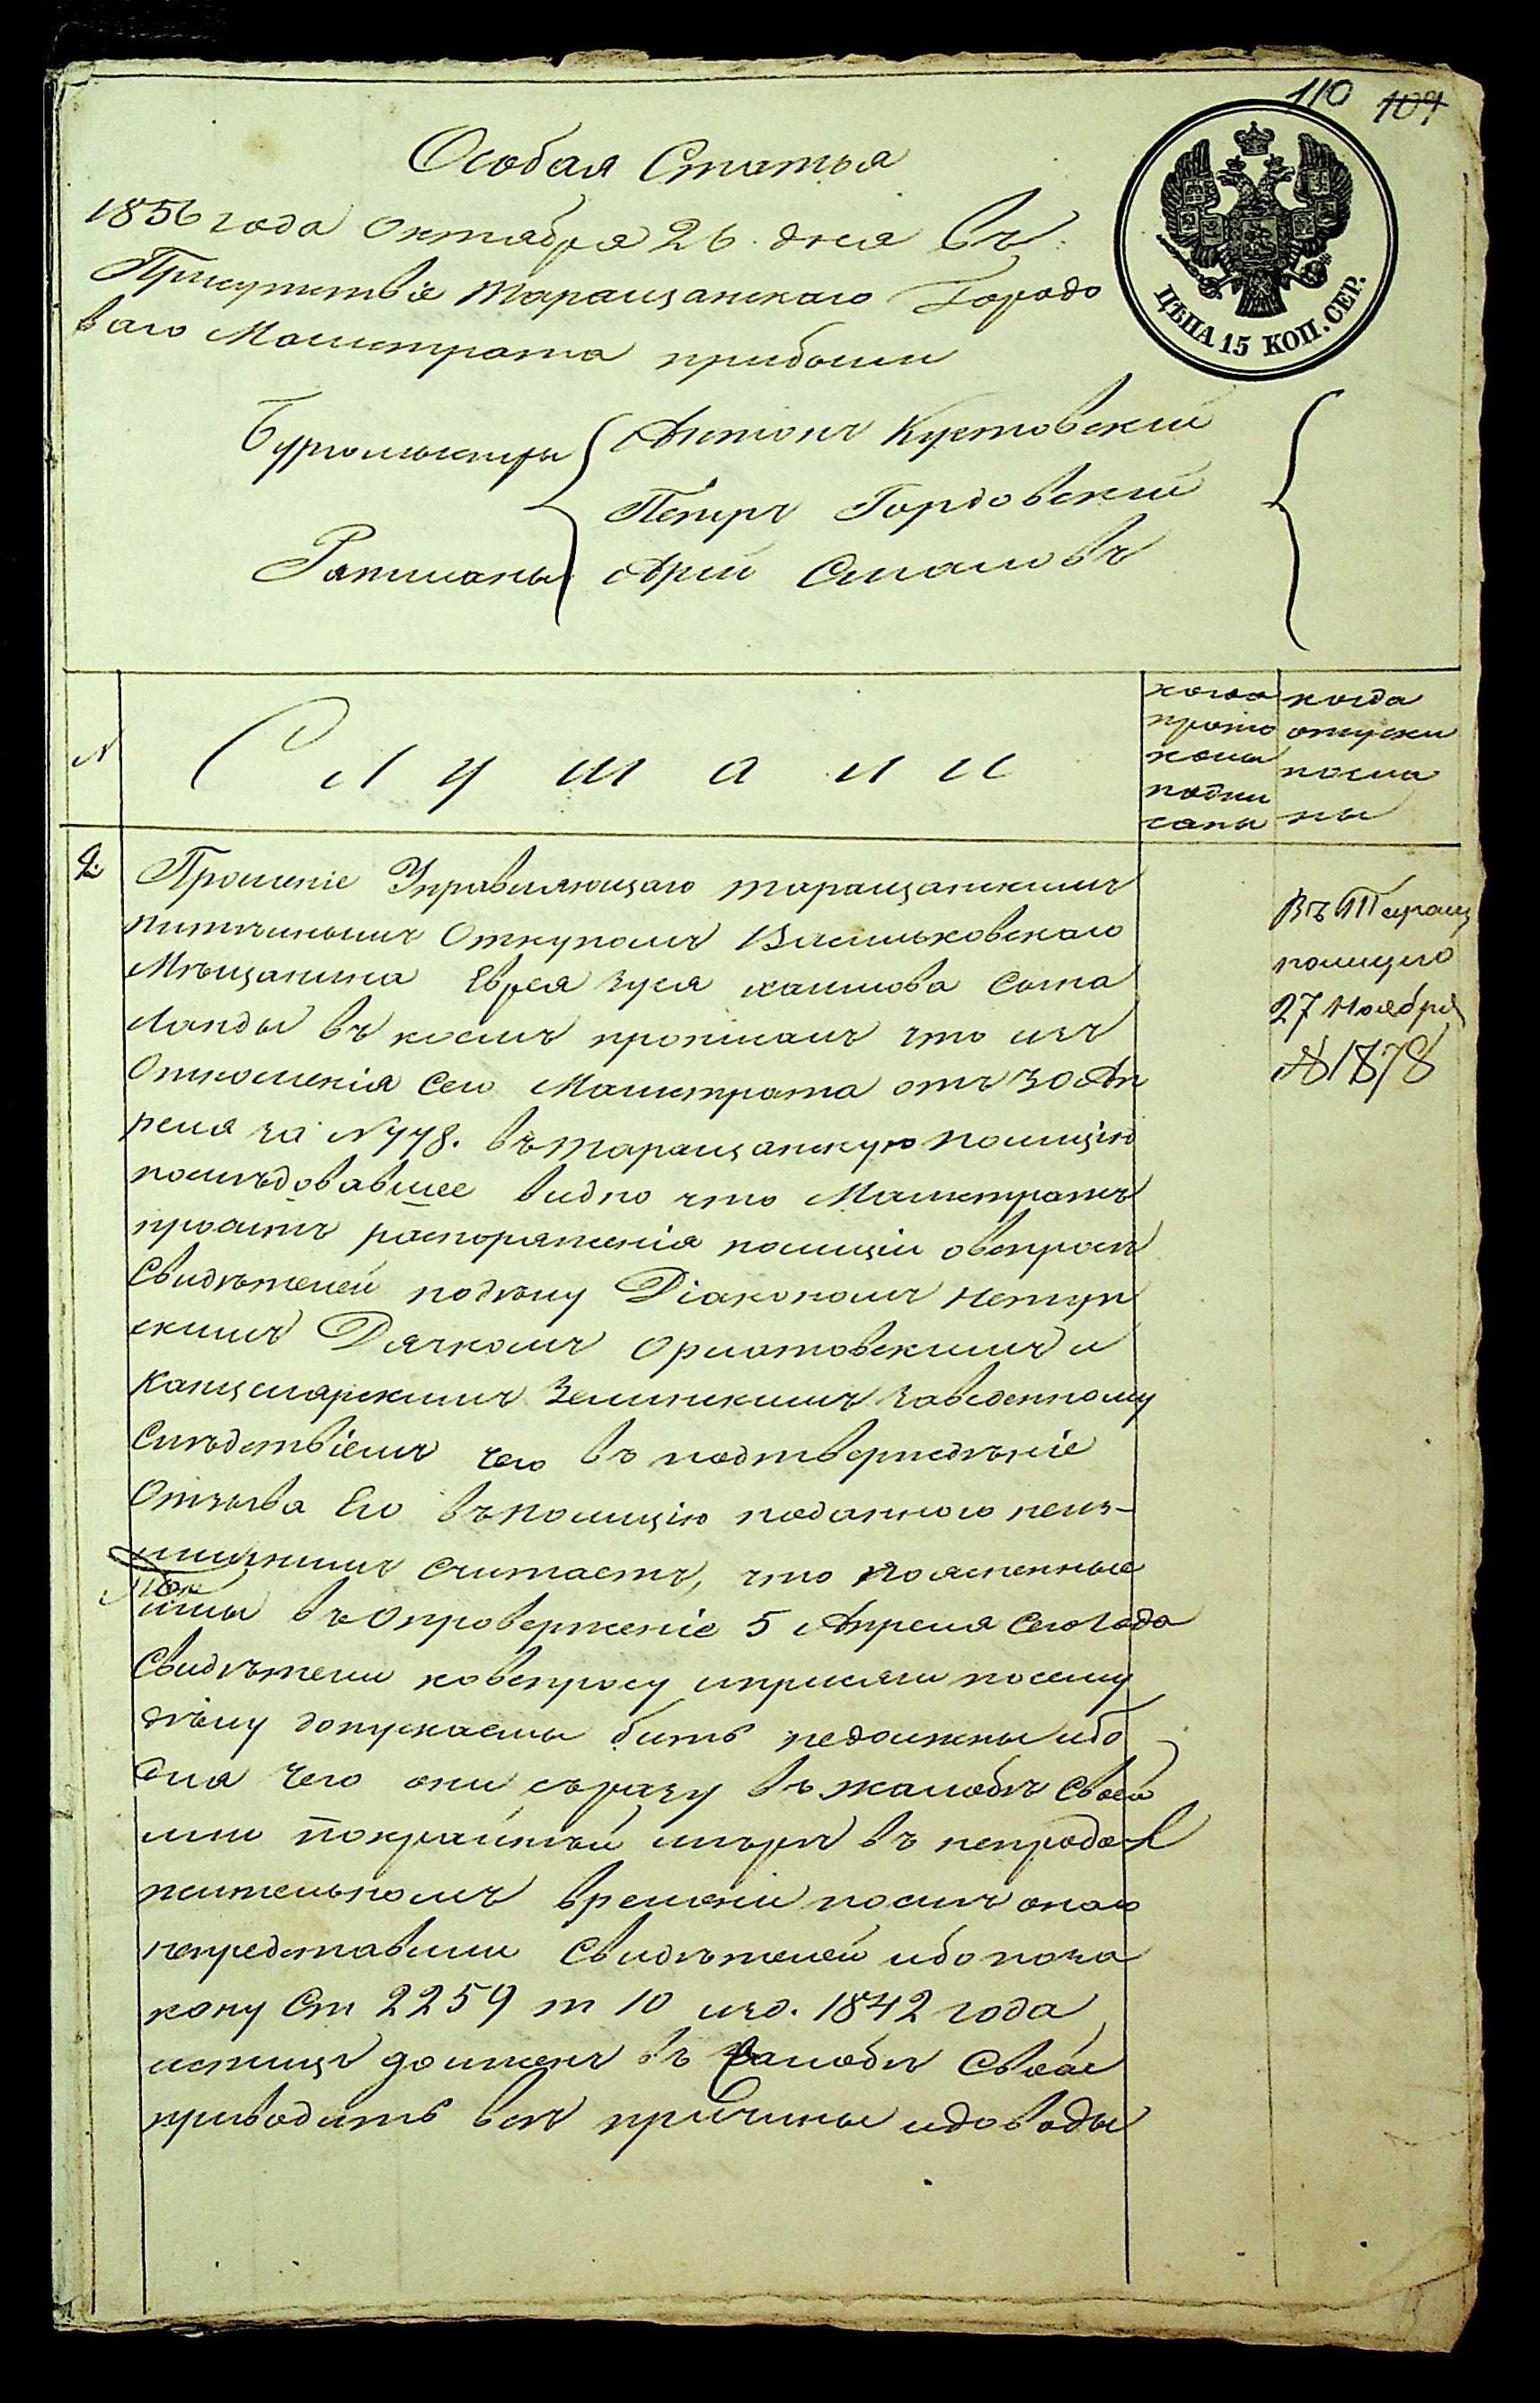 110 109
ЦѢНА 15 КОП. СЕР.
Особая Статья
1856 года Октября 26 дня Въ
Присутствіе Таращанскаго Городо
ваго Магистрата прибыли
Бургомистры Антонъ Кустовскій
Петръ Гордовскій
Ратманы
N
Слушали
когда
прото
колы
подпи
саны
когда
отпуски
посла
ны
2.
Прошеніе Управляющаго Таращанскимъ
питейнымъ Откупомъ Васильковскаго
Мѣщанина Еврея Зуся Хаимова Сына
Ланды въ коемъ прописалъ что изъ
Отношенія Сего Магистрата отъ 30 Ап
реля за N 778. въ Таращанскую полицію
послѣдовавшее видно что Магистратъ
проситъ распоряженія полиціи овспросѣ
Свидѣтелей подѣлу Діакономъ
скимъ Дячкомъ Орлатовскимъ и
Канцелярскимъ Зелинскимъ заведенному
Слѣдствіемъ чего въ подтвержденіе
Отзыва Его въ полицію поданного неиз-
лишнимъ Считаетъ, что поясненные
ими въ Опроверженіе 5 Апреля Сего года
Свидѣтели ковспросу иприсяги посему
дѣлу допускаемы быть недолжны ибо
для чего они съразу въ жалобѣ Своей
или покрайней мѣрѣ въ непродол
жительномъ времени послѣ оной
непредставили Свидѣтелей ибо поза
кону Ст 2259 т 10 изд. 1842 года
истицъ долженъ въ жалобѣ Своей
приводить всѣ причины идоводы
Въ Таращ
полицію
27 Ноября
№ 1878